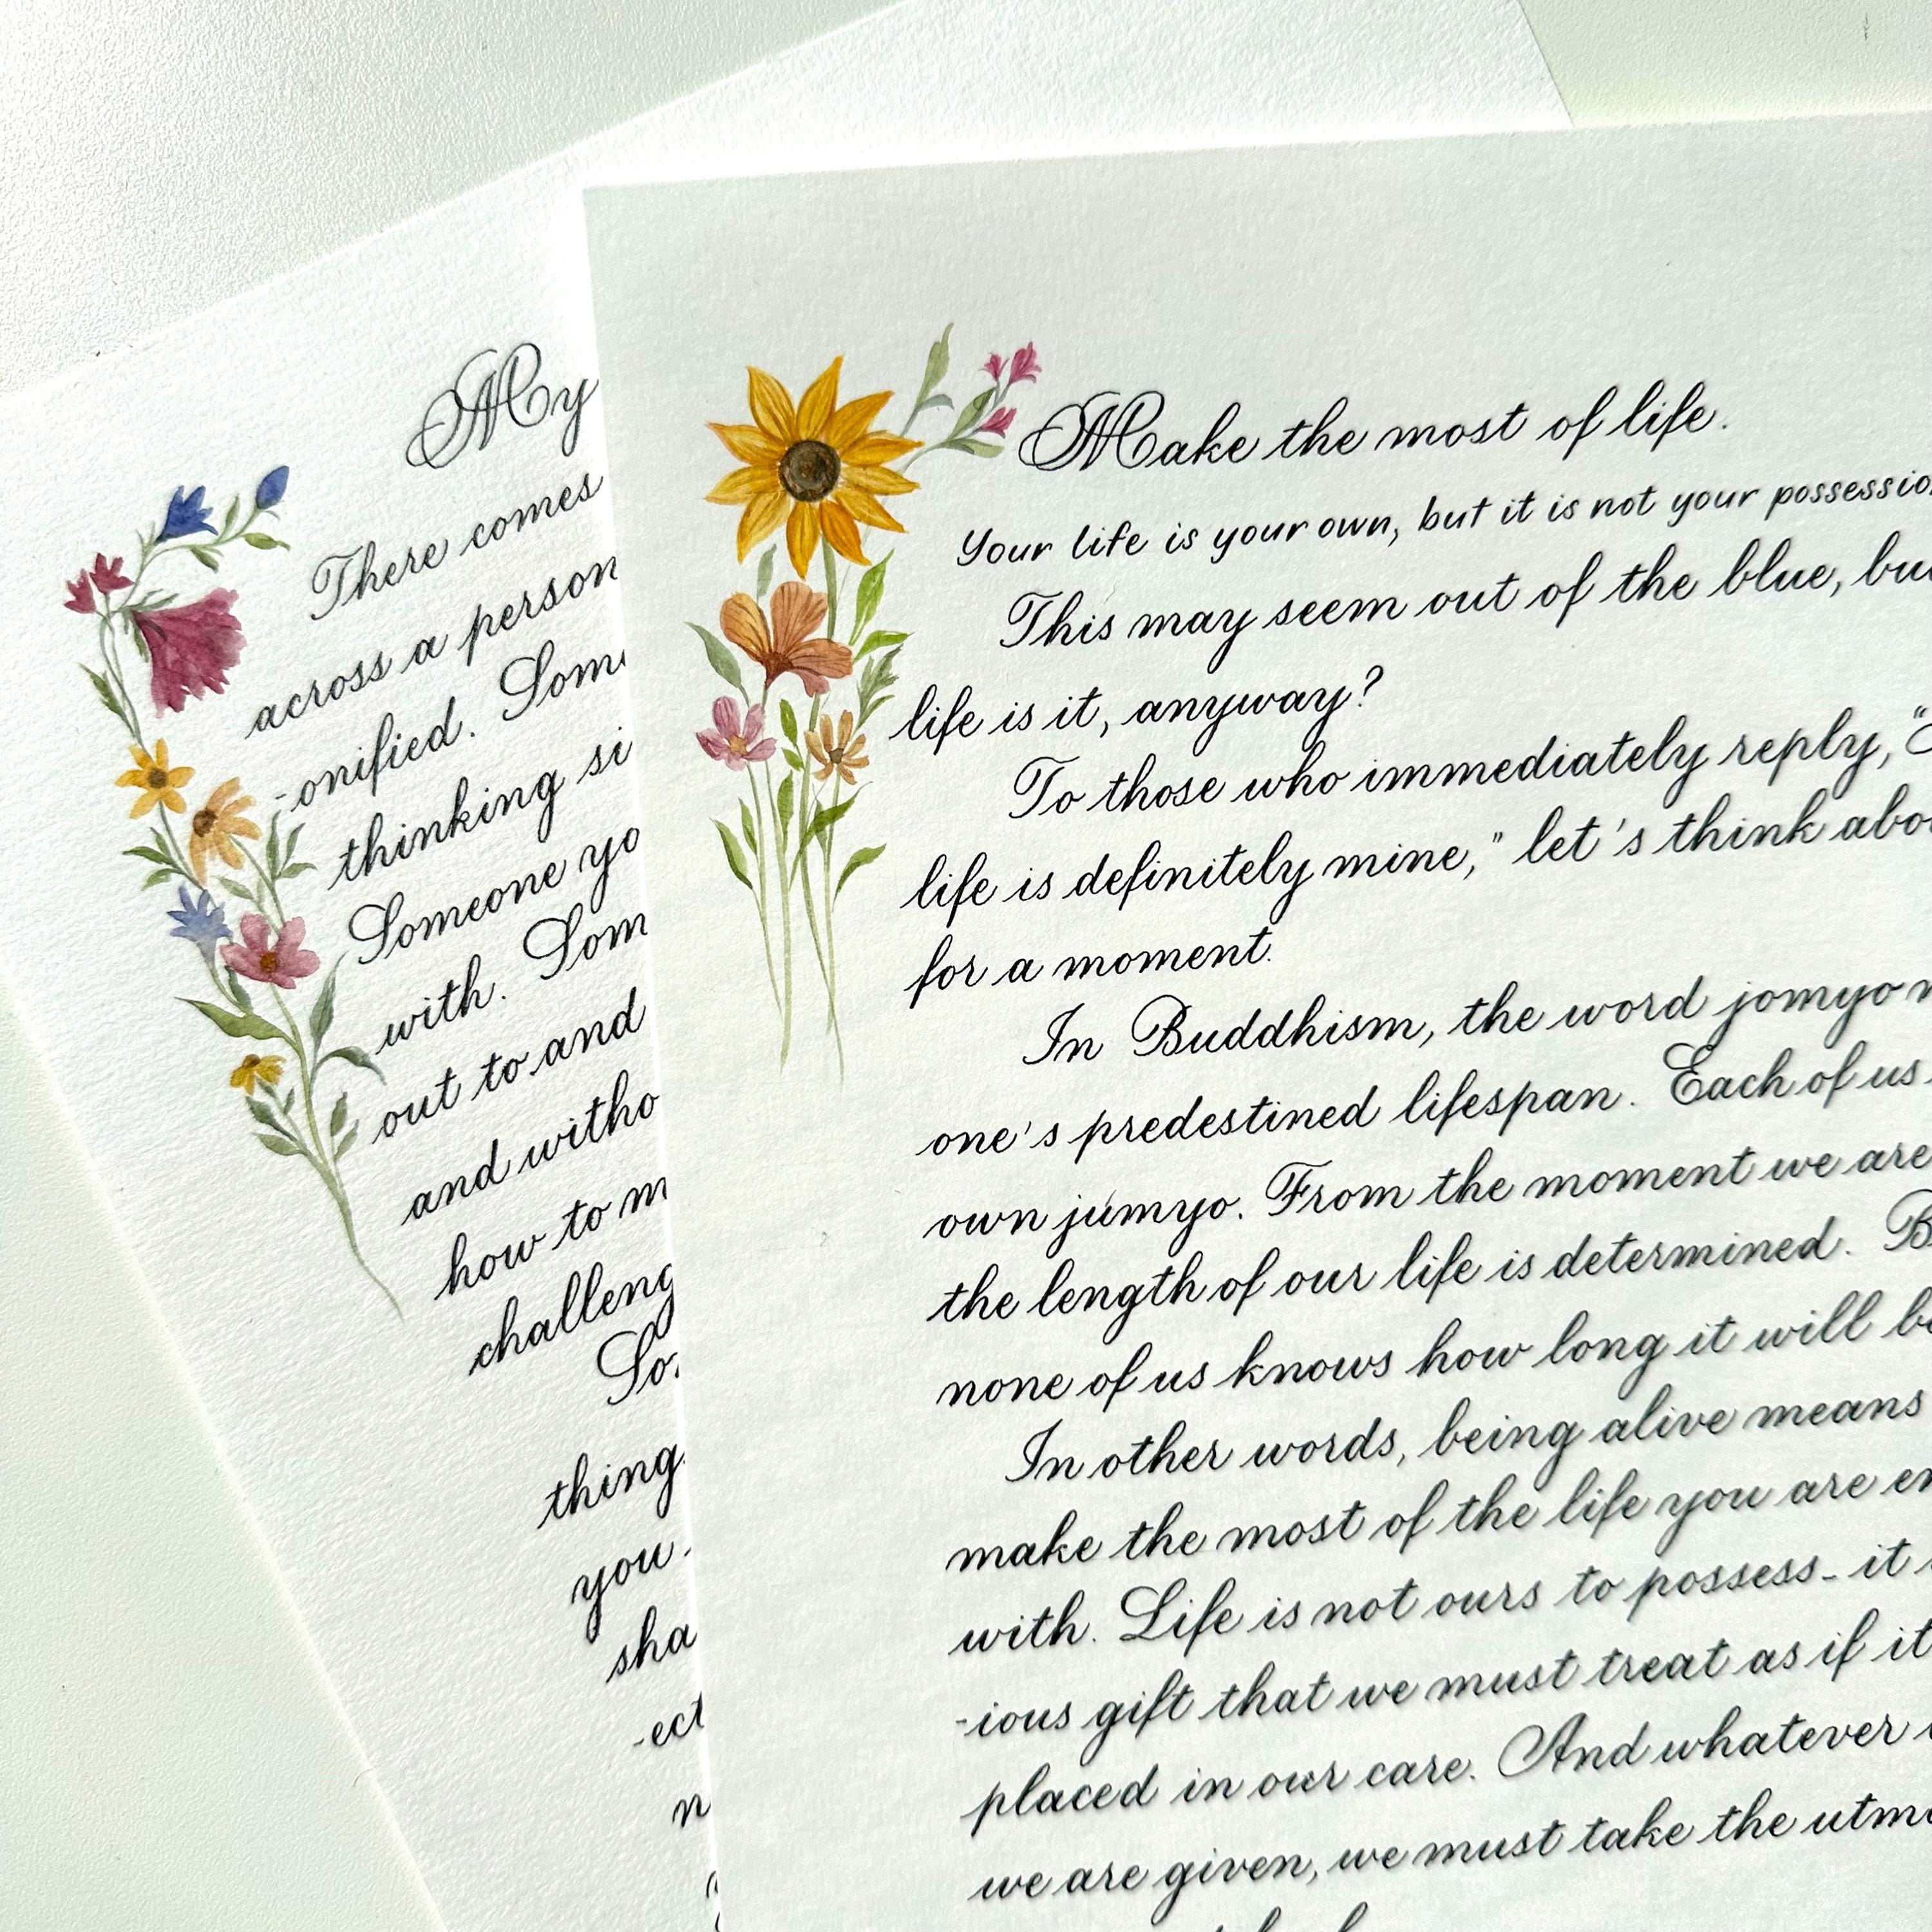 My
There comes
across a person
-onified. Som
thinking si
Someone yo
with. Som
out to and
and witho
how to m
challeng
So
thing
you
sha
-ect
n
Make the most of life.
Your life is your own, but it is not your possessio
This may seem out of the blue, bu
life is it, anyway?
To those who immediately reply, "
life is definitely mine," let's think abo
for a moment.
In Buddhism, the word jomyo
one's predestined lifespan. Each of us
own jumyo. From the moment we are
the length of our life is determined. B
none of us knows how long it will b
In other words, being alive means
make the most of the life you are en
with. Life is not ours to possess- it
-ious gift that we must treat as if it
placed in our care. And whatever
we are given, we must take the utm